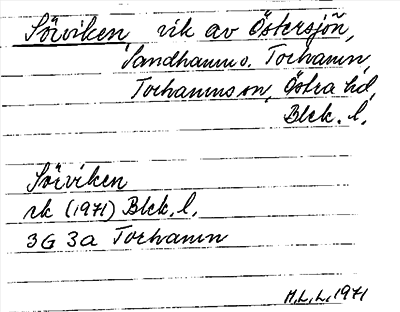 Sörviken vik av Östersjön,
Sandhamn s. Torhamn,
Torhamns sn, Östra hd,
Blek. l,
Sörviken
rk (1971) Blek, l,
3G 3a Torhamn
M, L, L, 1971